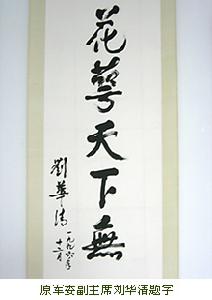 花萼天下無
劉華清
一九九六年
十二月
原军委副主席刘华清题字